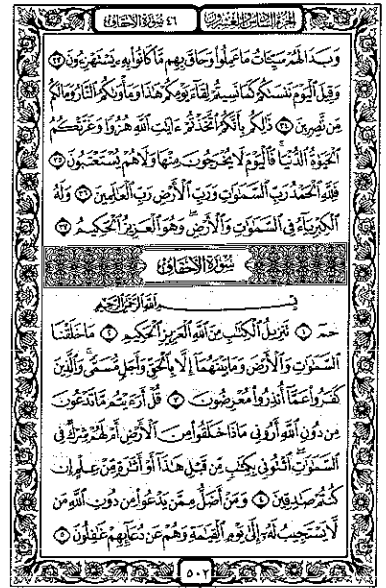 الجزء السادس والعشرون ٤٦ سورة الأحقاف
وَبَدَا لَهُمْ سَيِّئَاتُ مَا عَمِلُوا وَحَاقَ بِهِم مَّا كَانُوا بِهِ يَسْتَهْزِءُونَ ٣٣
وَقِيلَ الْيَوْمَ نَنسَاكُمْ كَمَا نَسِيتُمْ لِقَاءَ يَوْمِكُمْ هَٰذَا وَمَأْوَاكُمُ النَّارُ وَمَا لَكُم
مِّن نَّاصِرِينَ ٣٤ ذَٰلِكُم بِأَنَّكُمُ اتَّخَذْتُمْ ءَايَاتِ اللَّهِ هُزُوًا وَغَرَّتْكُمُ
الْحَيَوٰةُ الدُّنْيَا فَالْيَوْمَ لَا يُخْرَجُونَ مِنْهَا وَلَا هُمْ يُسْتَعْتَبُونَ ٣٥
فَلِلَّهِ الْحَمْدُ رَبِّ السَّمَٰوَٰتِ وَرَبِّ الْأَرْضِ رَبِّ الْعَالَمِينَ ٣٦ وَلَهُ
الْكِبْرِيَاءُ فِي السَّمَٰوَٰتِ وَالْأَرْضِ وَهُوَ الْعَزِيزُ الْحَكِيمُ ٣٧
سورة الأحقاف
بِسْمِ اللَّهِ الرَّحْمَٰنِ الرَّحِيمِ
حمٓ ١ تَنزِيلُ الْكِتَابِ مِنَ اللَّهِ الْعَزِيزِ الْحَكِيمِ ٢ مَا خَلَقْنَا
السَّمَٰوَٰتِ وَالْأَرْضَ وَمَا بَيْنَهُمَا إِلَّا بِالْحَقِّ وَأَجَلٍ مُّسَمًّى وَالَّذِينَ
كَفَرُوا عَمَّا أُنذِرُوا مُعْرِضُونَ ٣ قُلْ أَرَءَيْتُم مَّا تَدْعُونَ
مِن دُونِ اللَّهِ أَرُونِي مَاذَا خَلَقُوا مِنَ الْأَرْضِ أَمْ لَهُمْ شِرْكٌ فِي
السَّمَٰوَٰتِ ائْتُونِي بِكِتَابٍ مِّن قَبْلِ هَٰذَا أَوْ أَثَارَةٍ مِّنْ عِلْمٍ إِن
كُنتُمْ صَادِقِينَ ٤ وَمَنْ أَضَلُّ مِمَّن يَدْعُوا مِن دُونِ اللَّهِ مَن
لَّا يَسْتَجِيبُ لَهُ إِلَىٰ يَوْمِ الْقِيَامَةِ وَهُمْ عَن دُعَائِهِمْ غَافِلُونَ ٥
٥٠٢